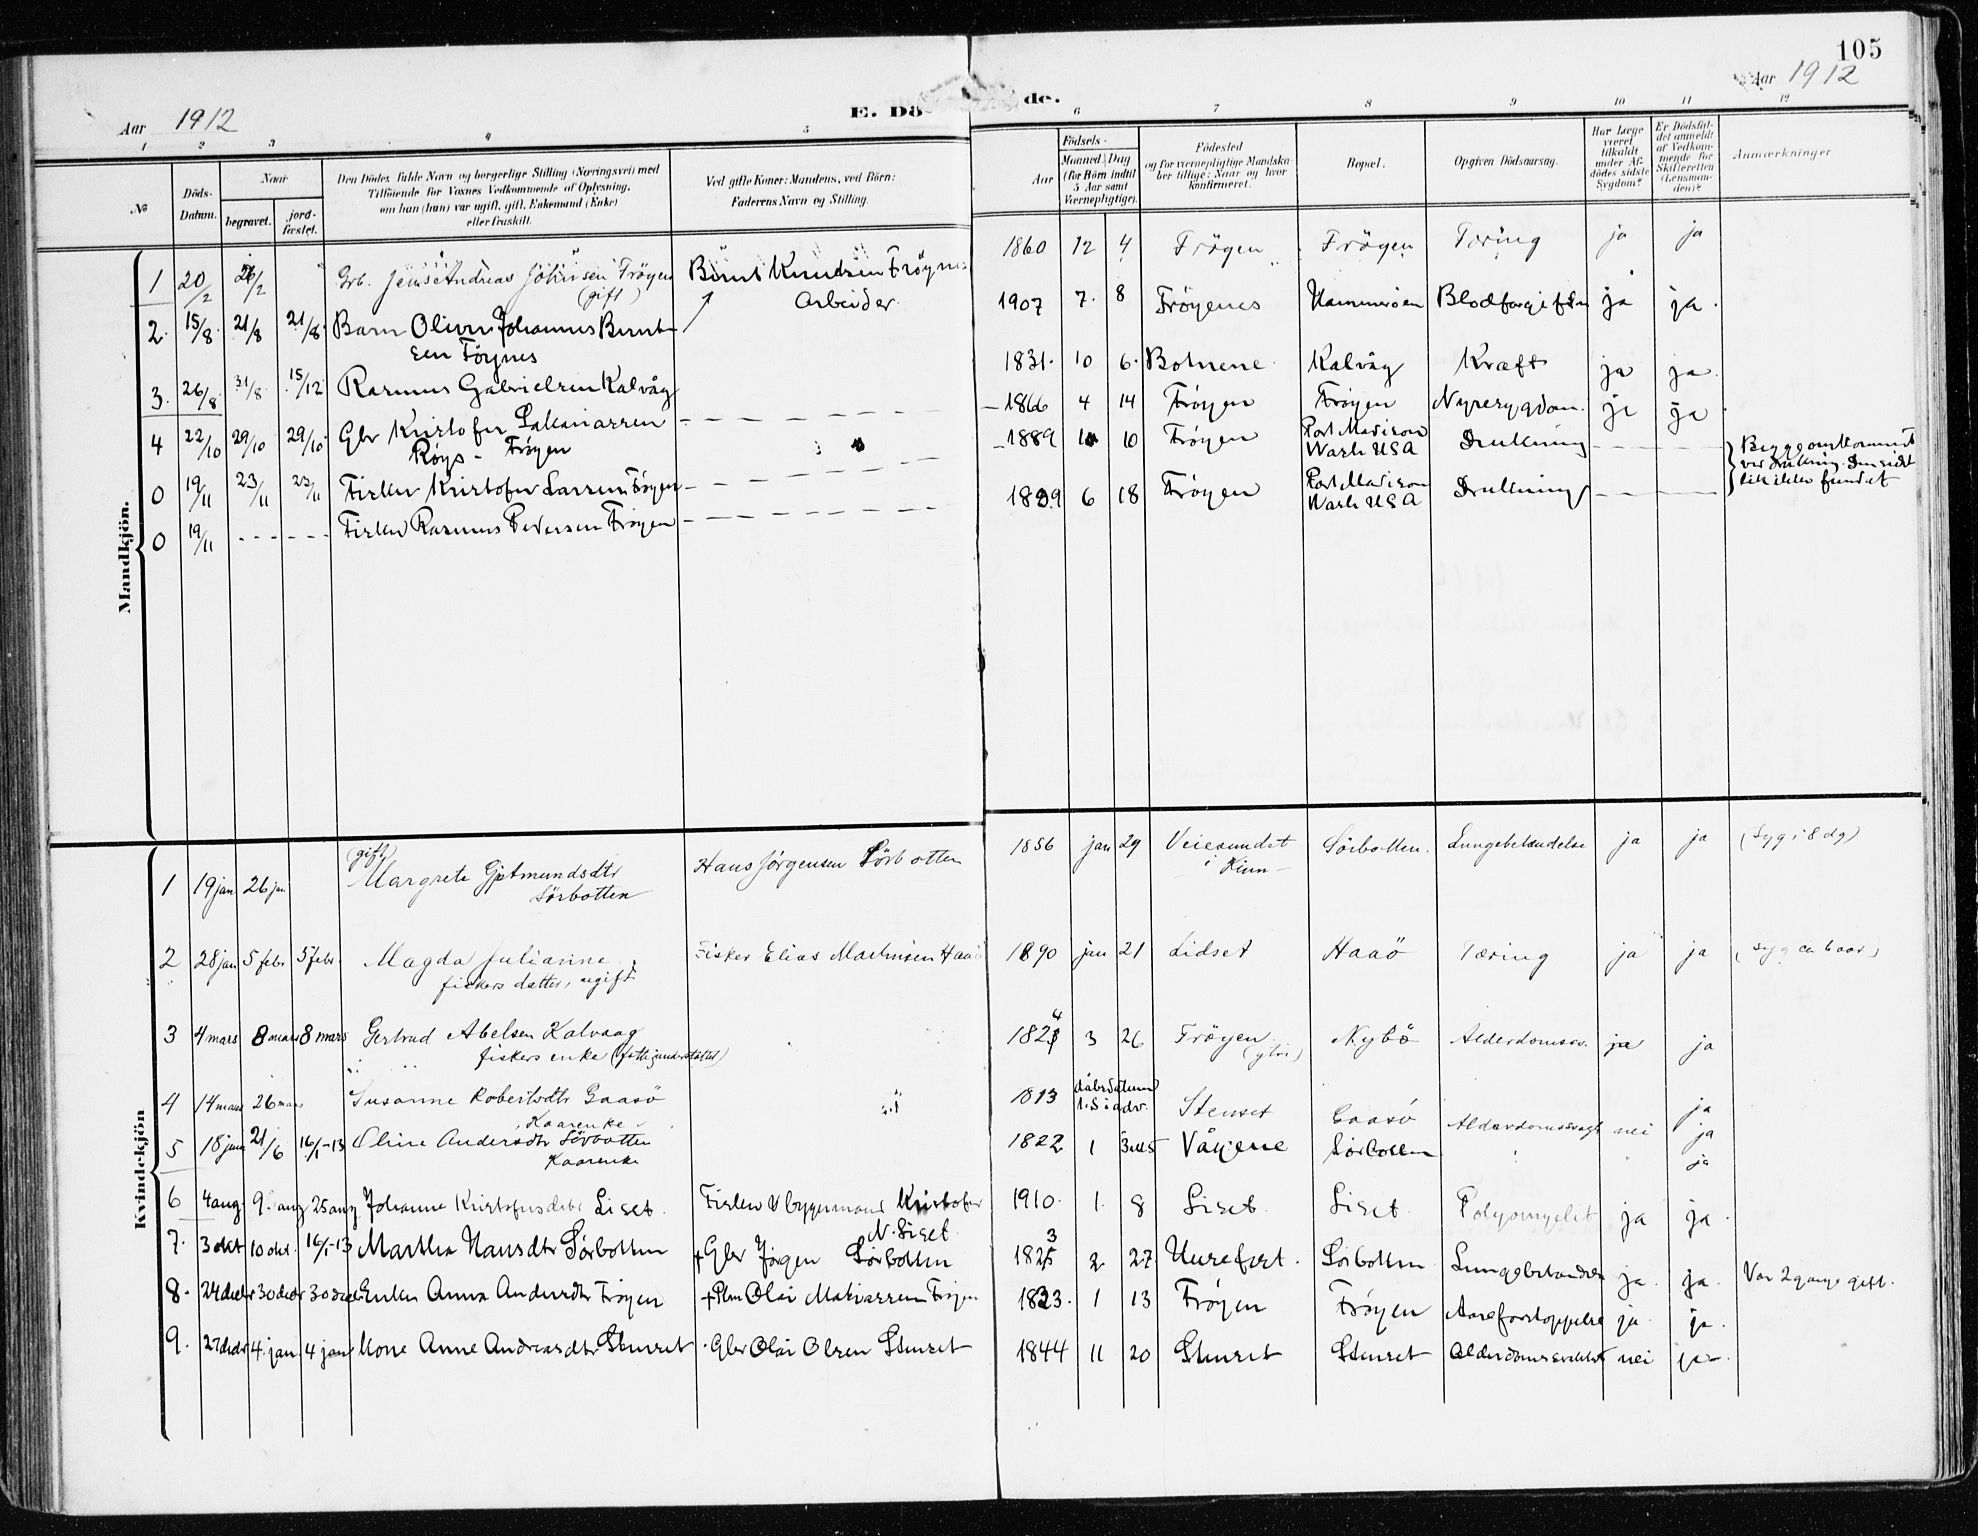 105
Aar 1912
E. Dö de.
Aar 1912
1 2 3 4 5 6 7 8 9 10 11 12
№
Döds-
Datum.
Naar
begravet.
jord-
fæstet.
Den Dödes fulde Navn og borgerlige Stilling (Næringsvei) med
Tilföiende for Voxnes Vedkommende af Oplysning,
om han (hun) var ugift, gift, Enkemand (Enke)
eller fraskilt.
Ved gifte Koner: Mandens, ved Börn:
Faderens Navn og Stilling.
Födsels-
Aar
Maaned. Dag
(for Börn indtil
5 Aar samt
Værnepligtige).
Födested
og for værnepligtige Mandska-
ber tillige: Naar og hvor
konfirmeret.
Bopæl.
Opgiven Dödsaarsag.
Har Læge
været
tilkaldt
under Af-
dödes sidste
Sygdom?
Er Dödsfal-
det anmeldt
af Vedkom-
mende for
Skifteretten
(Lensman-
den)?
Anmærkninger
Mandkjön.
1 20/2 26/2 Grb. Jens Andreas Johnsen Fröyen (gift) 1860 12 4 Fröyen Fröyen Tæring ja ja
2. 15/8 21/8 21/8 Barn Oliver Johannes Bernt-
sen Föynes Bernt Knudsen Fröynes
Arbeider. 1907 7. 8 Fröyenes Hammeröen Blodforgiftn ja ja.
3. 26/8 31/8 15/12 Rasmus Gabrielsen Kalvåg 1831. 10 6. Botnene Kalvåg Kræft ja ja.
4 22/10 29/10 29/10 Gbr Kristofer Sakariassen
Röys - Fröyen 1866 4 14 Fröyen Fröyen Nyresygdom. ja ja
0 19/11 23/11 23/11 Fisker Kristofer Larsen Fröyen 1889 10 10 Fröyen Port Madison
Wash USA Drukning
0 19/11 Fisker Rasmus Pedersen Fröyen 1889 6 18 Fröyen Port Madison
Wash USA Drukning
Begge omkommet
ved drukning. Den sidst
lik ikke fundet
Kvindekjön
1 19 jan 26 jan (gift)
Margrete Gjetmundsdtr
Sörbotten Hans Jörgensen Sörbotten 1856 jan 29 Veiesundet
i Kinn Sörbotten. Lungebetændelse ja ja (Syg i 8 dg)
2 28 jan 5 febr 5 febr. Magda Julianne
fiskers datter, ugift Fisker Elias Martinsen Haaö 1890 jun 21 Lidset Haaö Tæring ja ja (syg ca 6 aar)
3 4 mars 8 mars 8 mars Gertrud Abelsen Kalvaag
fiskers enke (fattigunderstöttet) 1824 3 26 Fröyen
(ytre) Nybö Alderdomssv. ja ja
4 14 mars 26 mars Susanne Robertsdtr Gaasö
Kaarenke 1813 dåbsdatum
1. S i adv. Stenset Gaasö Alderdomssvagh nei ja
5 18 juni 21/6 16/1-13 Oline Andersdtr Sörbotten
Kaarenke 1822 1 3 Vågene Sörbotten ja
ja
6 4 aug. 9. aug 25 aug. Johanne Kristofersdatr Liset. Fisker & byggmand Kristofer
N. Liset 1910. 1. 8 Liset. Liset. Polyomyelit ja ja.
7. 3 okt 10 okt. 16/1-13 Martha Hansdtr Sörbotten + Gbr Jörgen Sörbotten 1823 2 27 Hurefort. Sörbotten Lungebetændelse ja. ja.
8. 24 decbr 30 decbr 30 decbr Enken Anna Andersdtr Fröyen + Plm Olai Makiassen Fröyen 1823. 1 13 Fröyen Fröyen Aareforstoppelse ja ja. Var 2 gange gift.
9. 27 decbr 4. jan 4 jan Kone Anne Andreasdtr Stenset Gbr Olai Olsen Stenset 1844 11 20 Stenset Stenset Alderdomssvakhet nei ja.